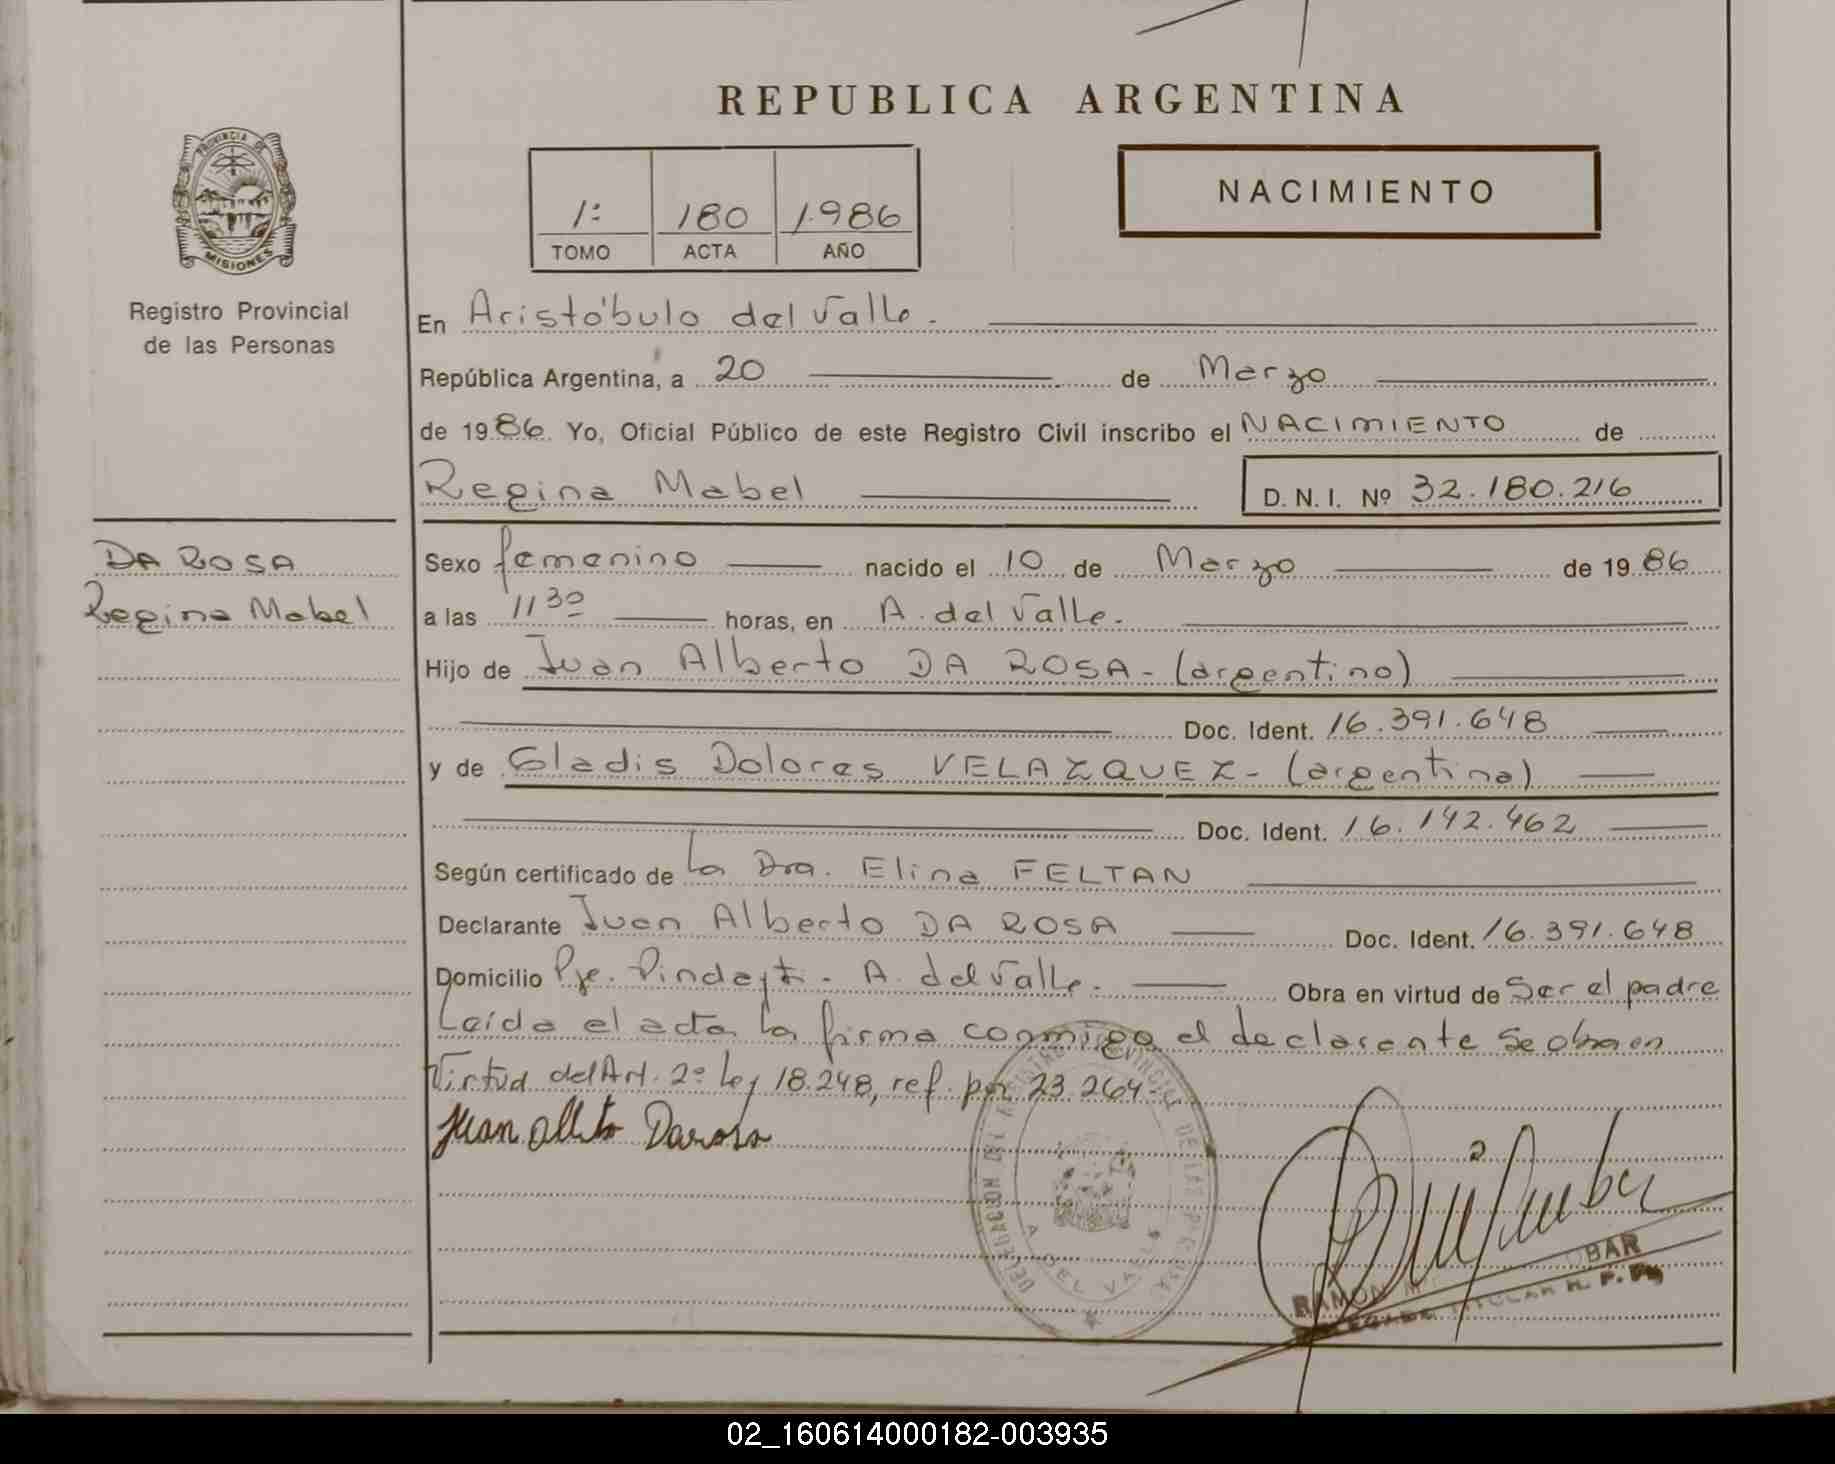 REPUBLICA ARGENTINA
PROVINCIA DE
MISIONES
Registro Provincial
de las Personas
1º 180 1.986
TOMO ACTA AÑO
NACIMIENTO
En Aristóbulo del Valle.
República Argentina, a 20 de Marzo
de 1986. Yo, Oficial Público de este Registro Civil inscribo el NACIMIENTO de
Regina Mabel D. N. I. Nº 32.180.216
DA ROSA
Regina Mabel
Sexo femenino nacido el 10 de Marzo de 1986
a las 11 30 horas, en A. del Valle.
Hijo de Juan Alberto DA ROSA - (argentino)
Doc. Ident. 16.391.648
y de Gladis Dolores VELAZQUEZ - (argentina)
Doc. Ident. 16.142.462
Según certificado de la Dra. Elina FELTAN
Declarante Juan Alberto DA ROSA Doc. Ident. 16.391.648
Domicilio Pje. A. del Valle. Obra en virtud de Ser el padre
Leída el acta la firma conmigo el declarante Se obra en
Virtud del Art. 2º Ley 18.248, ref. por 23.264.
Juan Albto Darosa
DELEGACION DEL REGISTRO PROVINCIAL DE LAS PERSONAS
A. DEL VALLE
RAMON M BAR
TITULAR R. P. P.
02_160614000182-003935